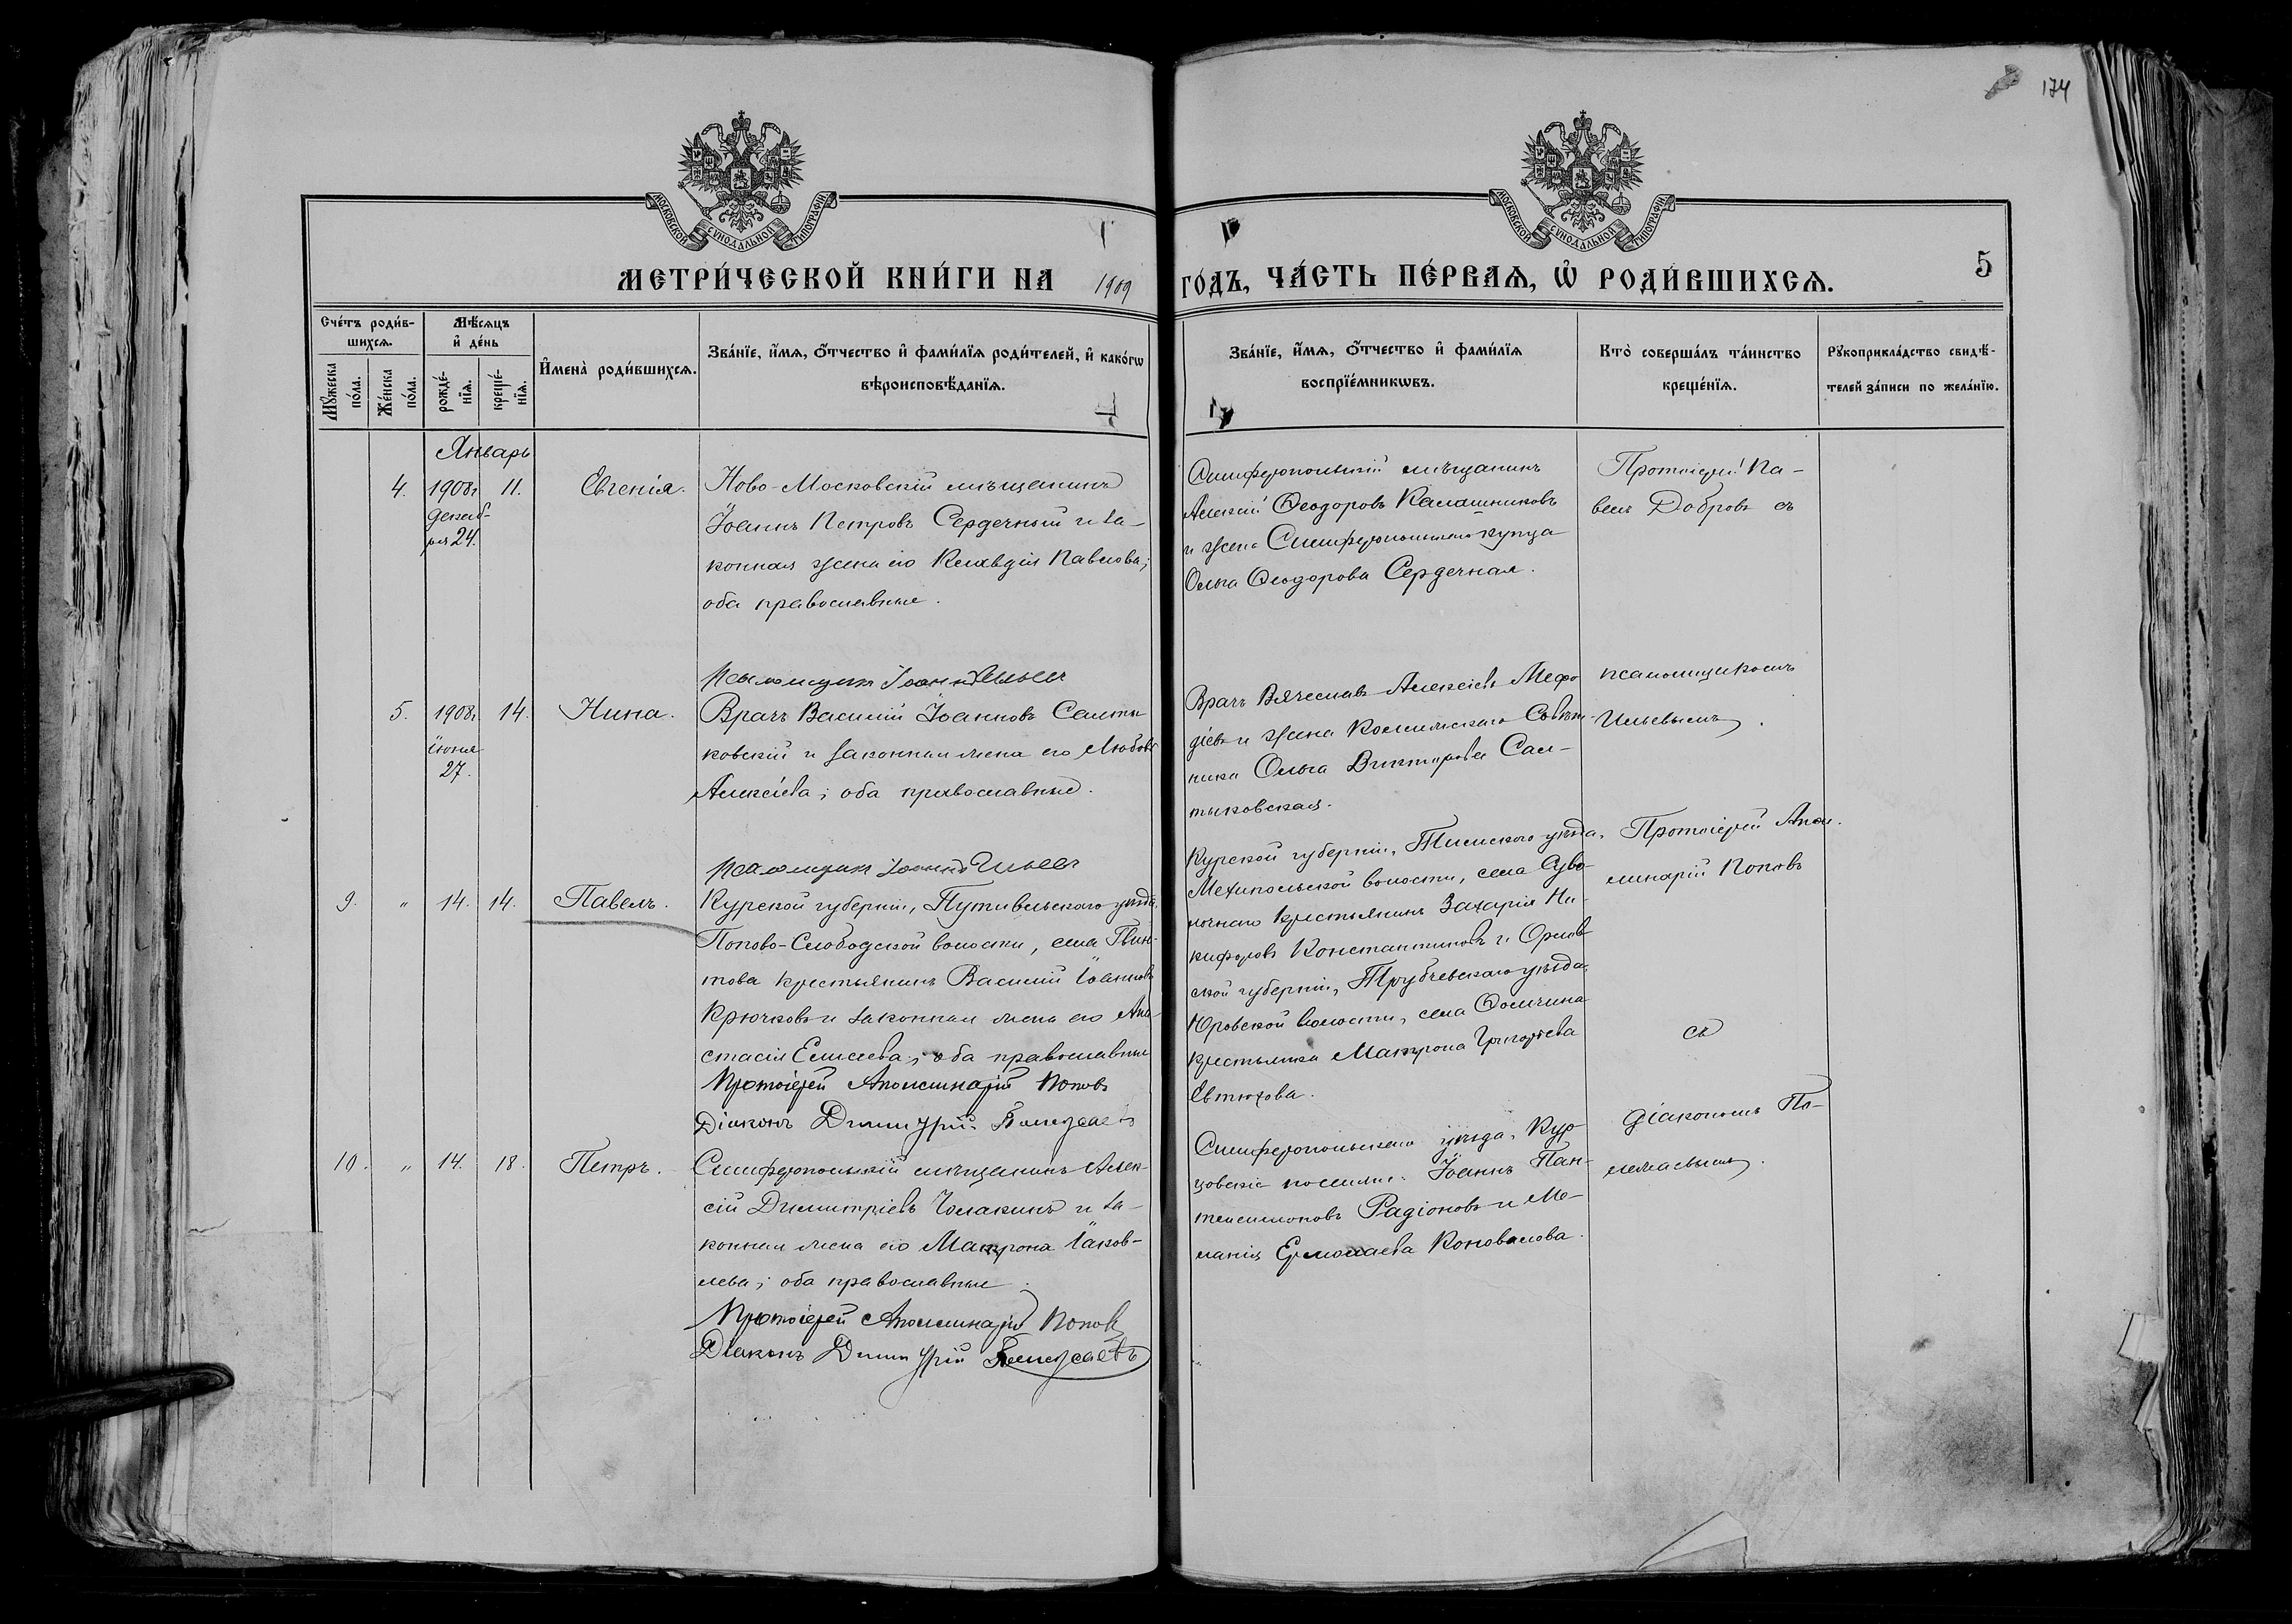 174
МОСКОВСКОЙ СѴНОДАЛЬНОЙ ТИПОГРАФІИ
МОСКОВСКОЙ СѴНОДАЛЬНОЙ ТИПОГРАФІИ
МЕТРИ́ЧЕСКОЙ КНИ́ГИ НА 1909 ГО́ДЪ, ЧА́СТЬ ПЕ́РВАѦ, Ѽ РОДИ́ВШИХСѦ.
5
Сче́тъ роди́в-
шихсѧ.
Мѹ́жеска по́ла.
Же́нска по́ла.
Мѣ́сѧцъ
и҆ де́нь
рожде́-
нїѧ.
креще́-
нїѧ.
И҆мена̀ роди́вшихсѧ.
Зва́нїе, и҆́мѧ, ѻ҆́тчество и҆ фами́лїѧ роди́телей, и҆ како́гѡ
вѣроисповѣ́данїѧ.
Зва́нїе, и҆́мѧ, ѻ҆́тчество и҆ фами́лїѧ
воспрїе́мникѡвъ.
Кто̀ соверша́лъ та́инство
креще́нїѧ.
Рѹкоприкла́дство свидѣ́-
телей за́писи по жела́нїю.
Январь
4. 1908г. 11. Евгенія.
декаб-
ря 24.
Ново-Московскій мѣщанинъ
Іоаннъ Петровъ Сердечный и за-
конная жена его Клавдія Павлова;
оба православные.
Симферопольскій мѣщанинъ
Алексій Ѳеодоровъ Калашниковъ
и жена Симферопольскаго купца
Ольга Ѳеодорова Сердечная.
Протоіерей Па-
велъ Добровъ съ
Псаломщикъ Іоаннъ Ильевъ
5. 1908г. 14. Нина.
іюня
27.
Врачъ Василій Іоанновъ Салты
ковскій и законная жена его Любовь
Алексѣева; оба православные.
Врачъ Вячеславъ Алексѣевъ Мефо
діевъ и жена Коллежскаго Совѣт-
ника Ольга Викторова Сал-
тыковская.
псаломщикомъ
Ильевымъ.
Псаломщикъ Іоаннъ Ильевъ
9. " 14. 14. Павелъ.
Курской губерніи, Путивльскаго уѣзда,
Попово-Слободской волости, села Гвин-
това крестьянинъ Василій Іоанновъ
Крючковъ и законная жена его Ана-
стасія Елисеева; оба православные
Протоіерей Аполлинарій Поповъ
Діаконъ Димитрій
Курской губерніи, Тимскаго уѣзда,
волости, села
крестьянинъ Захарія Ни-
кифоровъ Константиновъ и Орлов
ской губерніи, Трубчевскаго уѣзда,
Юровской волости, села Ѳомчина
крестьянка Матрона Григорьева
Евтюхова.
Протоіерей Апол-
линарій Поповъ
съ
10. " 14. 18. Петръ.
Симферопольскій мѣщанинъ Алек-
сій Димитріевъ Чолакинъ и за-
конная жена его Матрона Іаков-
лева; оба православные.
Протоіерей Аполлинарій Поповъ
Діаконъ Димитрій
Симферопольскаго уѣзда, Кур-
цовскіе поселяне: Іоаннъ Пан-
телеимоновъ Радіоновъ и Ме-
ланія Ермолаева Коновалова.
діакономъ